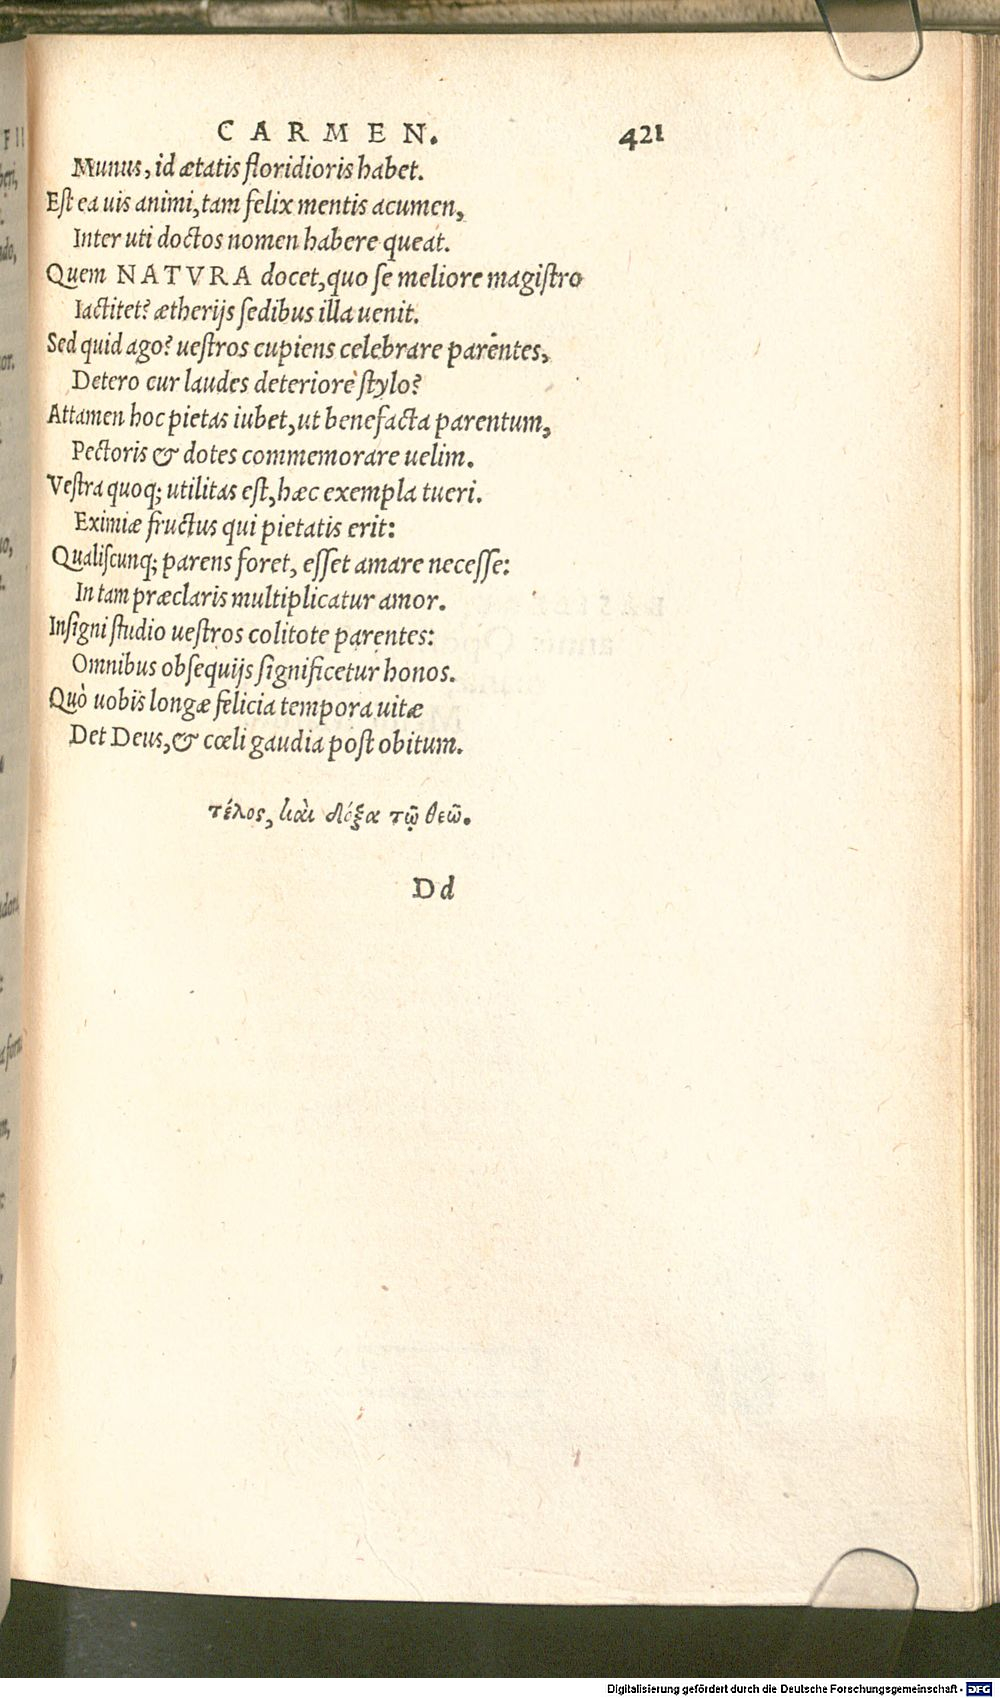 CARMEN. 421
Munus, id ætatis floridioris habet.
Est ea uis animi, tam felix mentis acumen,
Inter uti doctos nomen habere queat.
Quem NATVRA docet, quo se meliore magistro
Iactitet? ætherijs sedibus illa uenit.
Sed quid ago? uestros cupiens celebrare parentes,
Detero cur laudes deteriore stylo?
Attamen hoc pietas iubet, ut benefacta parentum,
Pectoris & dotes commemorare uelim.
Vestra quoq; utilitas est, hæc exempla tueri.
Eximiæ fructus qui pietatis erit:
Qualiscunq; parens foret, esset amare necesse:
In tam præclaris multiplicatur amor.
Insigni studio uestros colitote parentes:
Omnibus obsequijs significetur honos.
Quò uobis longæ felicia tempora uitæ
Det Deus, & cœli gaudia post obitum.
τέλος, καὶ δόξα τῷ θεῷ.
Dd
Digitalisierung gefördert durch die Deutsche Forschungsgemeinschaft - DFG